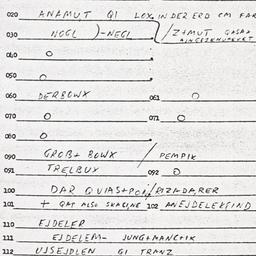 020 ANAMUT QI LOX IN DER ERD CM FAR
030 NOGL )-NEGL / Z+MUT GASA+
040 O
050 O
060 DERBOWX 061 O
070 O 071 O
080 O
090 GROB+ BOWX / PEMPIK
091 TRELBUX 092 O
100 DAR QUIAS+POP/ BIZADARER
101 + QAT ALSO SKAGINE 102 ANEJDELEKFIND
110 EJDELER
111 EJDELEM- JUNG+MANCFIK
112 UJSEJDLEN GI TRANZ